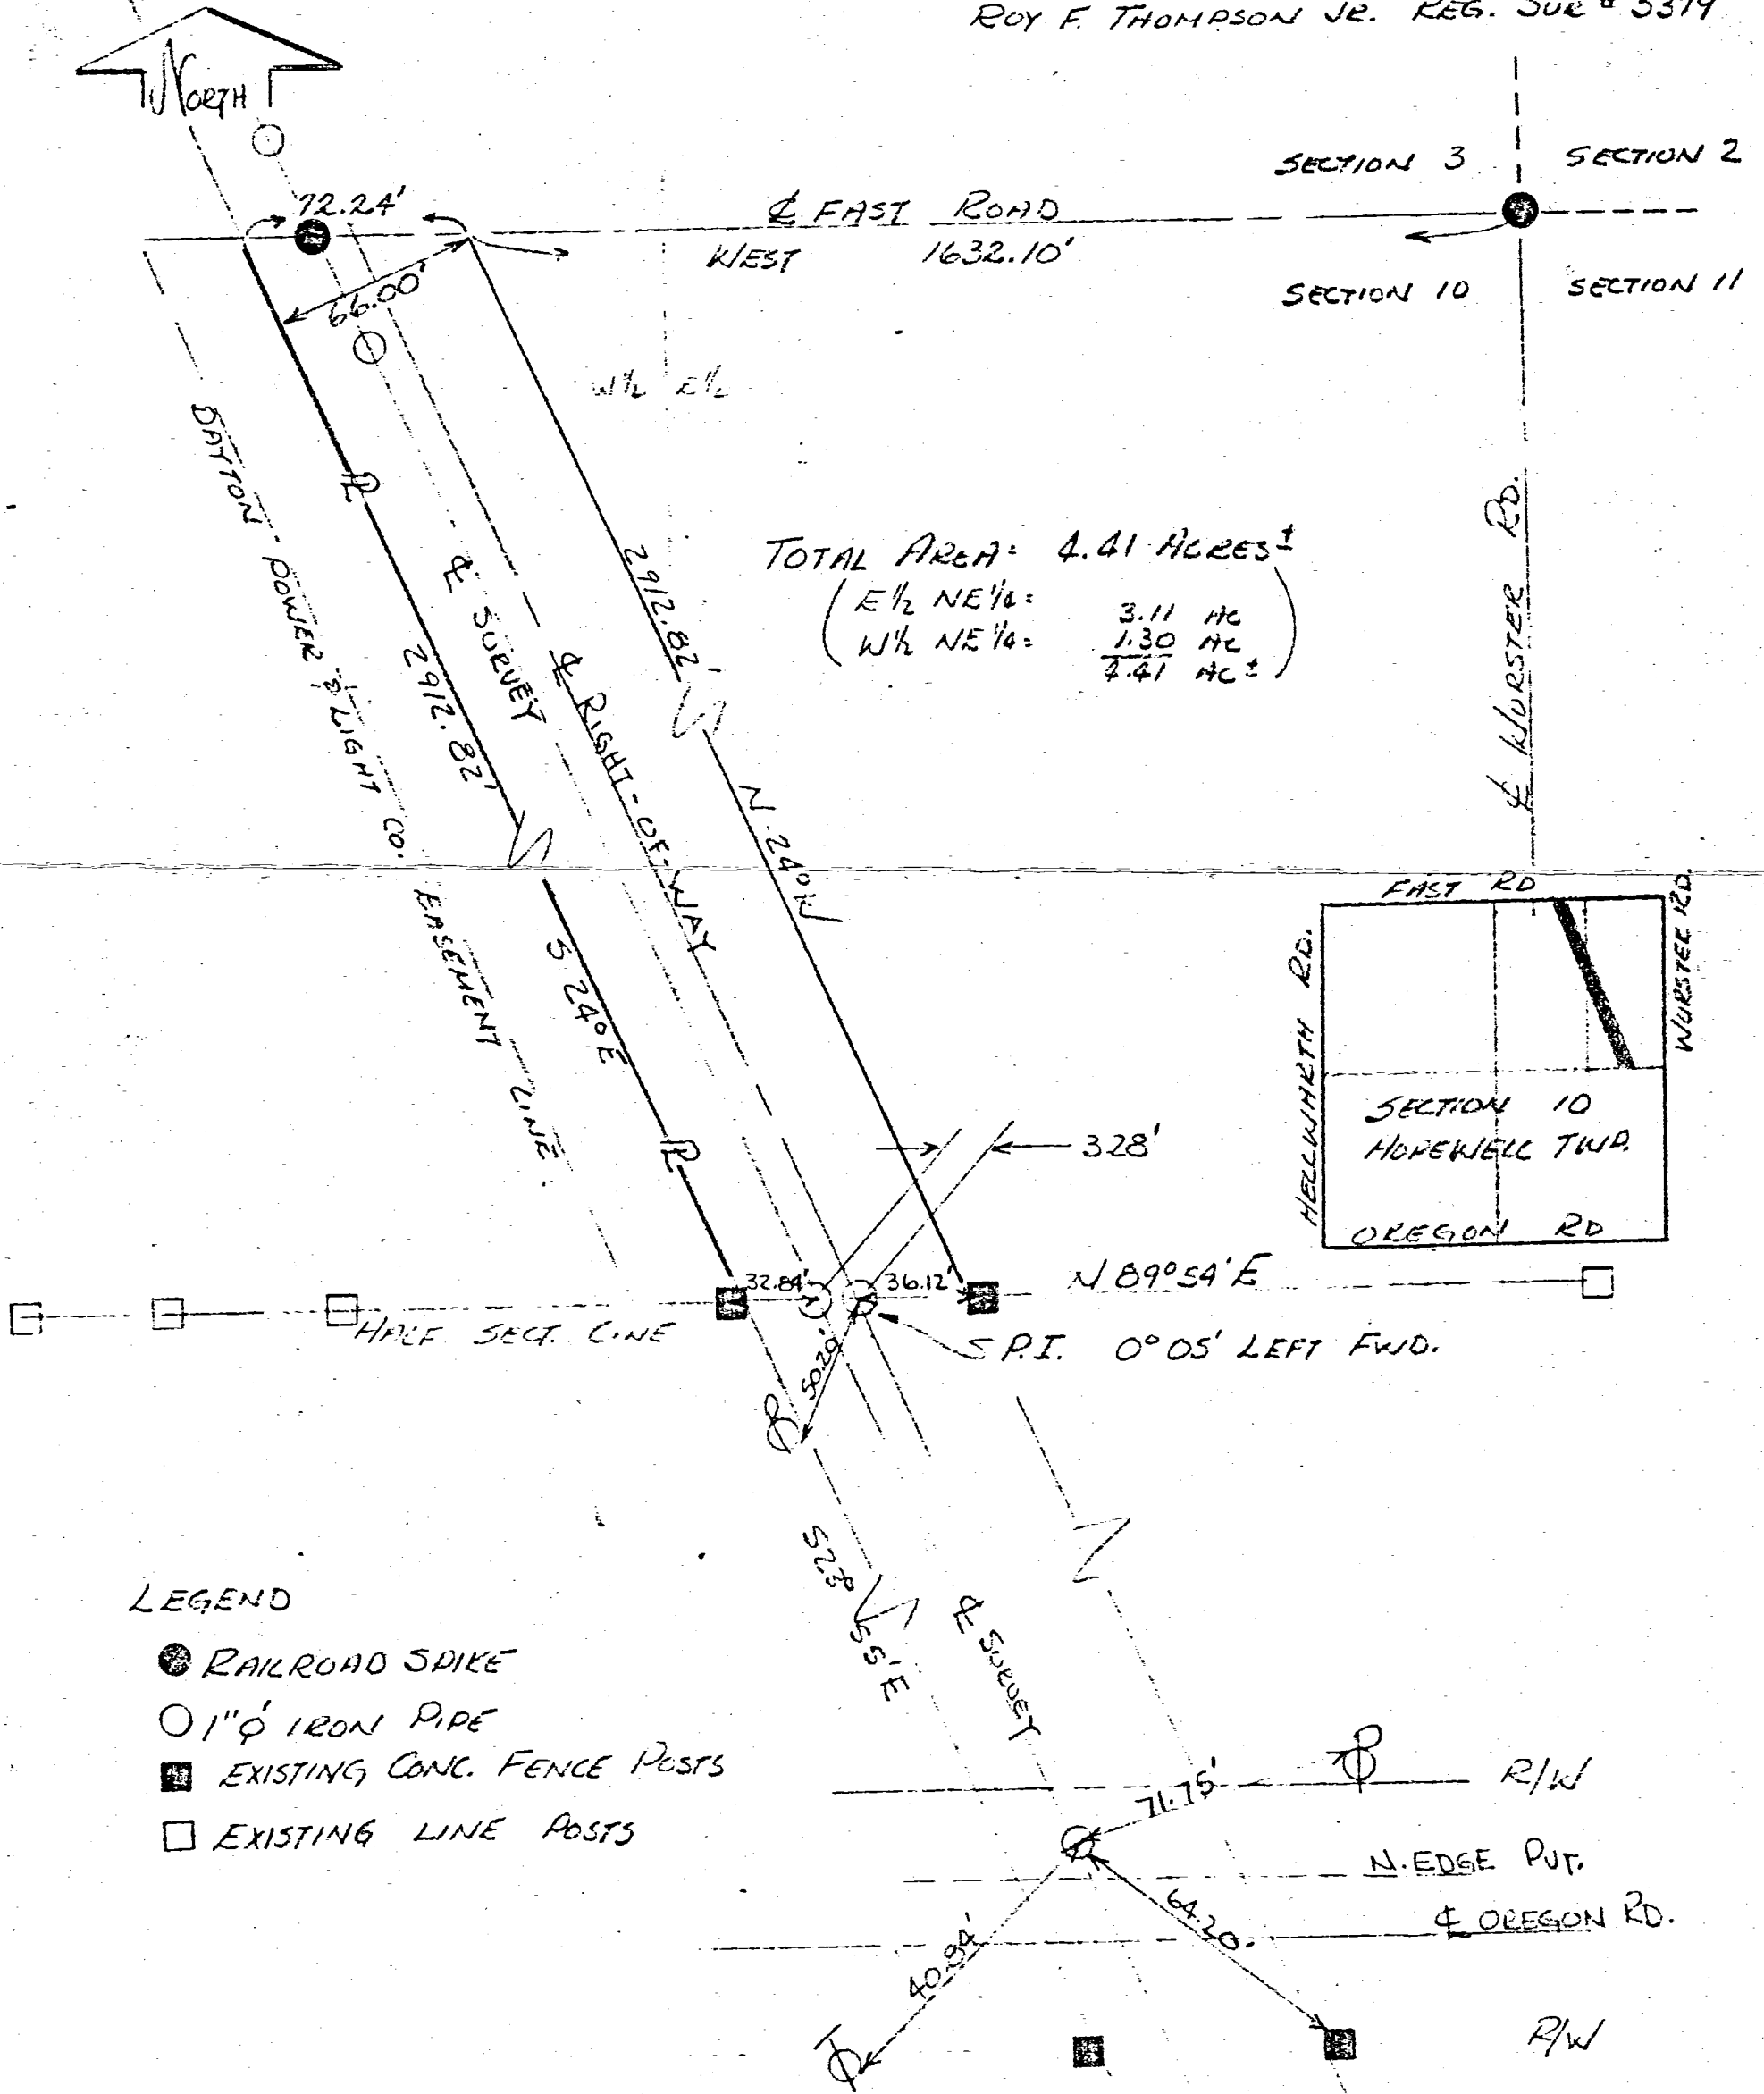 ROY F. THOMPSON JR. REG. SUR # 5379
NORTH
SECTION 3 SECTION 2
72.24'
℄ FAST ROAD
WEST 1632.10'
SECTION 10 SECTION 11
66.00'
W½ E½
DAYTON POWER & LIGHT CO. EASEMENT LINE
℄ SURVEY
℄ RIGHT-OF-WAY
2912.82'
2912.82'
N 24° W
S 24° E
TOTAL AREA: 4.41 ACRES ±
E½ NE¼ = 3.11 AC
W½ NE¼ = 1.30 AC
4.41 AC ±
℄ WURSTER RD.
FAST RD
HELLWARTH RD.
WURSTER RD.
SECTION 10
HOPEWELL TWP.
OREGON RD
3.28'
32.84'
36.12'
N 89°54' E
HALF SECT. LINE
S P.I. 0°05' LEFT FWD.
50.29'
S23°55'E
℄ SURVEY
LEGEND
RAILROAD SPIKE
1"ø IRON PIPE
EXISTING CONC. FENCE POSTS
EXISTING LINE POSTS
R/W
71.75'
N. EDGE PVT.
64.20'
℄ OREGON RD.
40.94'
R/W